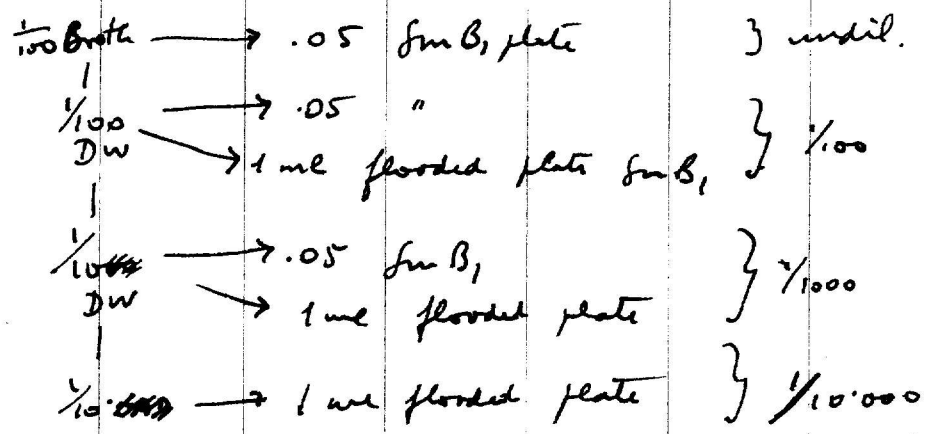 1/100 Broth → .05 Sm B1 plate } undil.
1/100 → .05 "
DW → 1 ml flooded plate Sm B1 } 1/100
1/10 → .05 Sm B1
DW → 1 ml flooded plate } 1/1000
1/10 → 1 ml flooded plate } 1/10·000